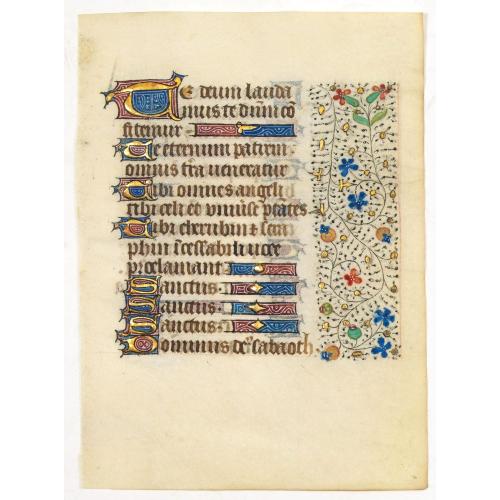 Te deum lauda
mus te dnm̄ cō
fitemur
Te eternum patrem
omnis tr̄a veneratur
Tibi omnes angeli
tibi celi et vniūse ptātes
Tibi cherubin ⁊ sera
phin īcessabili uoce
proclamant
Sanctus
Sanctus
Sanctus
Dominus deꝰ sabaoth